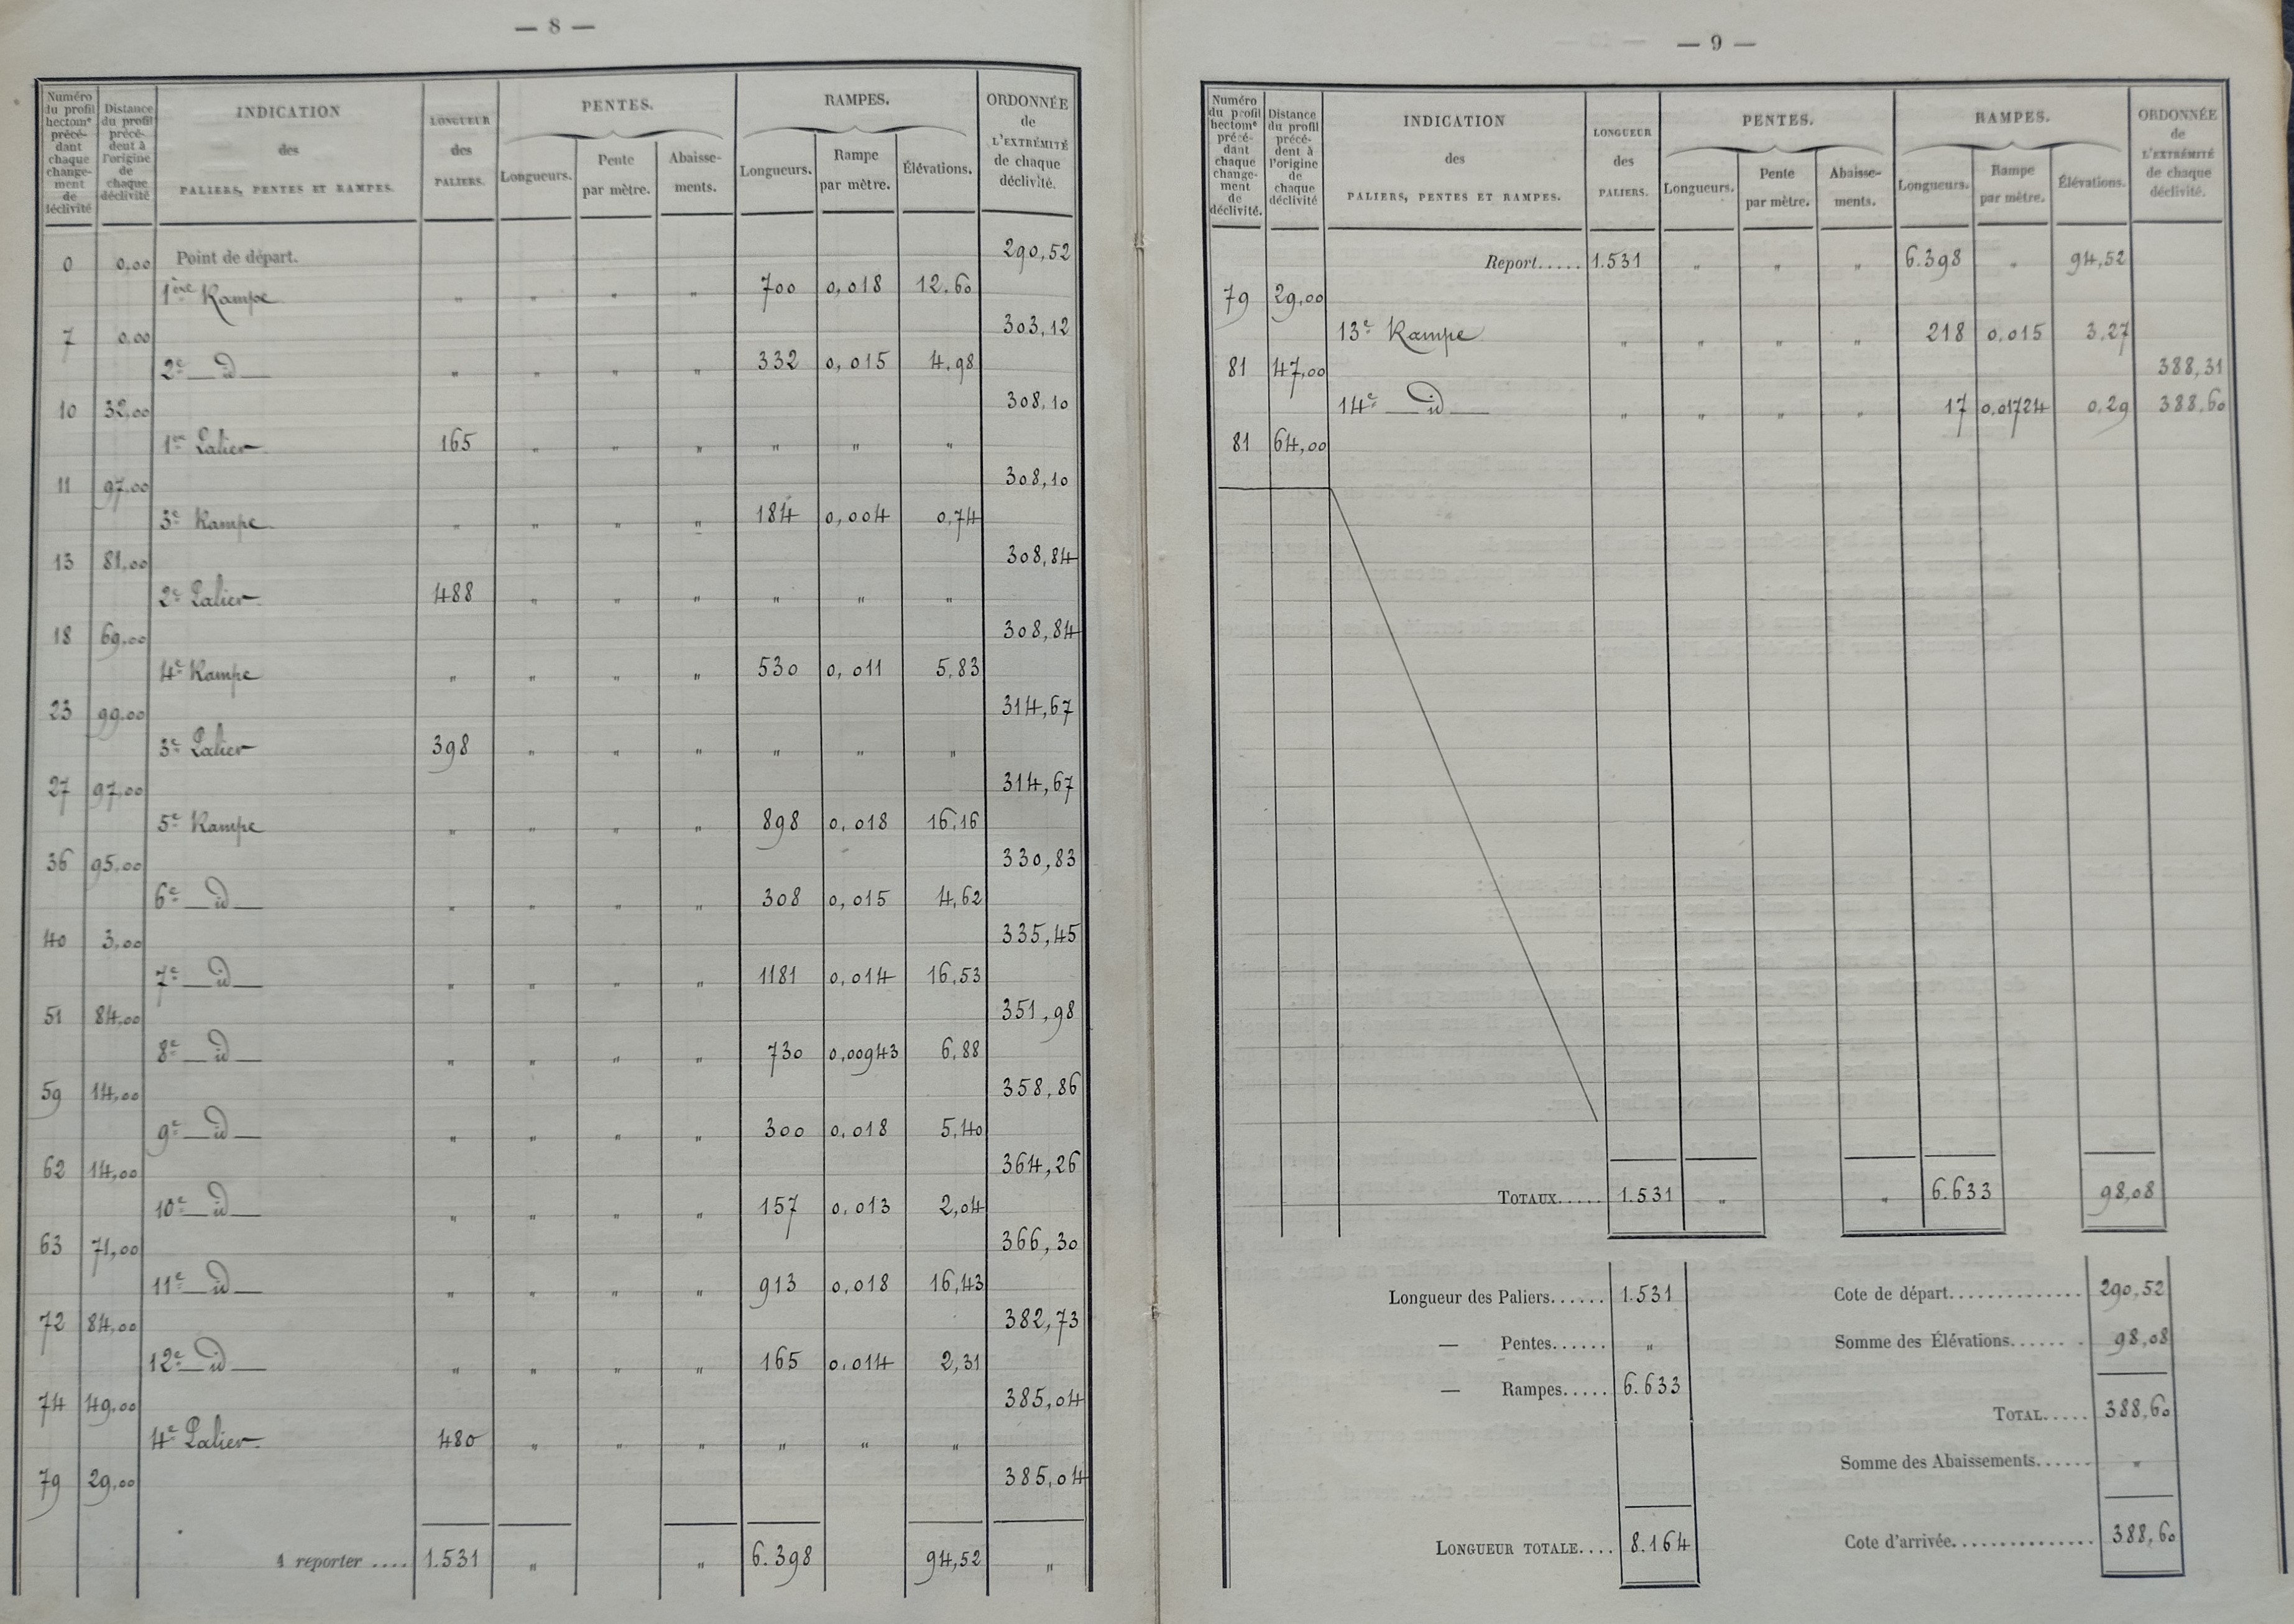 — 8 —
Numéro du profil hectomᵉ précédant chaque changement de déclivité
Distance du profil précédent à l'origine de chaque déclivité
INDICATION des PALIERS, PENTES ET RAMPES.
LONGUEUR des PALIERS.
PENTES.
Longueurs.
Pente par mètre.
Abaissements.
RAMPES.
Longueurs.
Rampe par mètre.
Élévations.
ORDONNÉE de L'EXTRÉMITÉ de chaque déclivité.
0 0,00 Point de départ. 290,52
1ère Rampe " " " " 700 0,018 12.60
7 0.00 303,12
2e — id — " " " " 332 0,015 4,98
10 32,00 308,10
1er Palier 165 " " " " " "
11 97,00 308,10
3e Rampe " " " " 184 0,004 0,74
13 81,00 308,84
2e Palier 488 " " " " " "
18 69,00 308,84
4e Rampe " " " " 530 0,011 5,83
23 99,00 314,67
3e Palier 398 " " " " " "
27 97,00 314,67
5e Rampe " " " " 898 0,018 16,16
36 95,00 330,83
6e — id — " " " " 308 0,015 4,62
40 3,00 335,45
7e — id — " " " " 1181 0,014 16,53
51 84,00 351,98
8e — id — " " " " 730 0,00943 6,88
59 14,00 358,86
9e — id — " " " " 300 0,018 5,40
62 14,00 364,26
10e — id — " " " " 157 0,013 2,04
63 71,00 366,30
11e — id — " " " " 913 0,018 16,43
72 84,00 382,73
12e — id — " " " " 165 0,014 2,31
74 49,00 385,04
4e Palier 480 " " " " " "
79 29,00 385,04
A reporter .... 1.531 " " 6.398 94,52 "
— 9 —
Numéro du profil hectomᵉ précédant chaque changement de déclivité.
Distance du profil précédent à l'origine de chaque déclivité
INDICATION des PALIERS, PENTES ET RAMPES.
LONGUEUR des PALIERS.
PENTES.
Longueurs.
Pente par mètre.
Abaissements.
RAMPES.
Longueurs.
Rampe par mètre.
Élévations.
ORDONNÉE de L'EXTRÉMITÉ de chaque déclivité.
Report..... 1.531 " " " 6.398 " 94,52
79 29,00
13e Rampe " " " " 218 0,015 3,27
81 47,00 388,31
14e — id — " " " " 17 0,01724 0,29 388,60
81 64,00
TOTAUX..... 1.531 " " 6.633 98,08
Longueur des Paliers...... 1.531
— Pentes...... "
— Rampes..... 6.633
LONGUEUR TOTALE.... 8.164
Cote de départ.............. 290,52
Somme des Élévations....... 98,08
TOTAL..... 388,60
Somme des Abaissements...... "
Cote d'arrivée............... 388,60